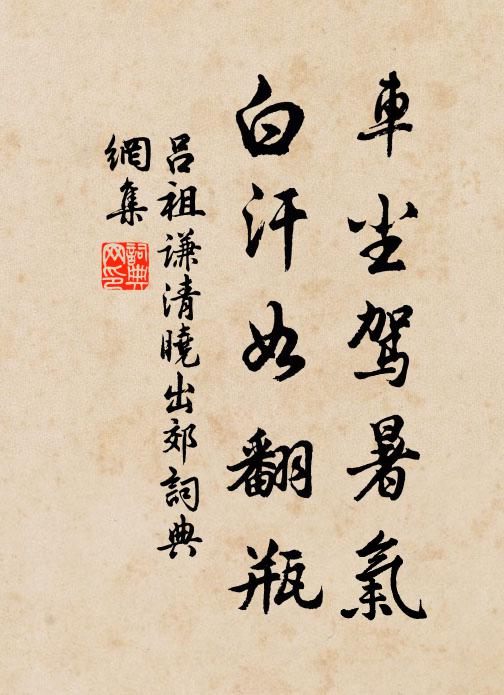 車尘駕暑氣
白汗如翻瓶
呂祖谦清曉出郊詞典
網集
詞典
网印